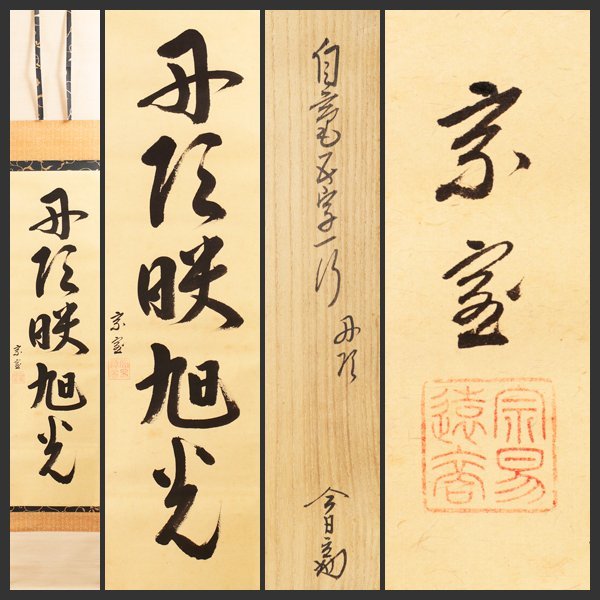 丹頂映旭光
宗室
丹頂映旭光
宗室
自毫五字一行
丹頂
今日主
宗室
宗易
遠裔